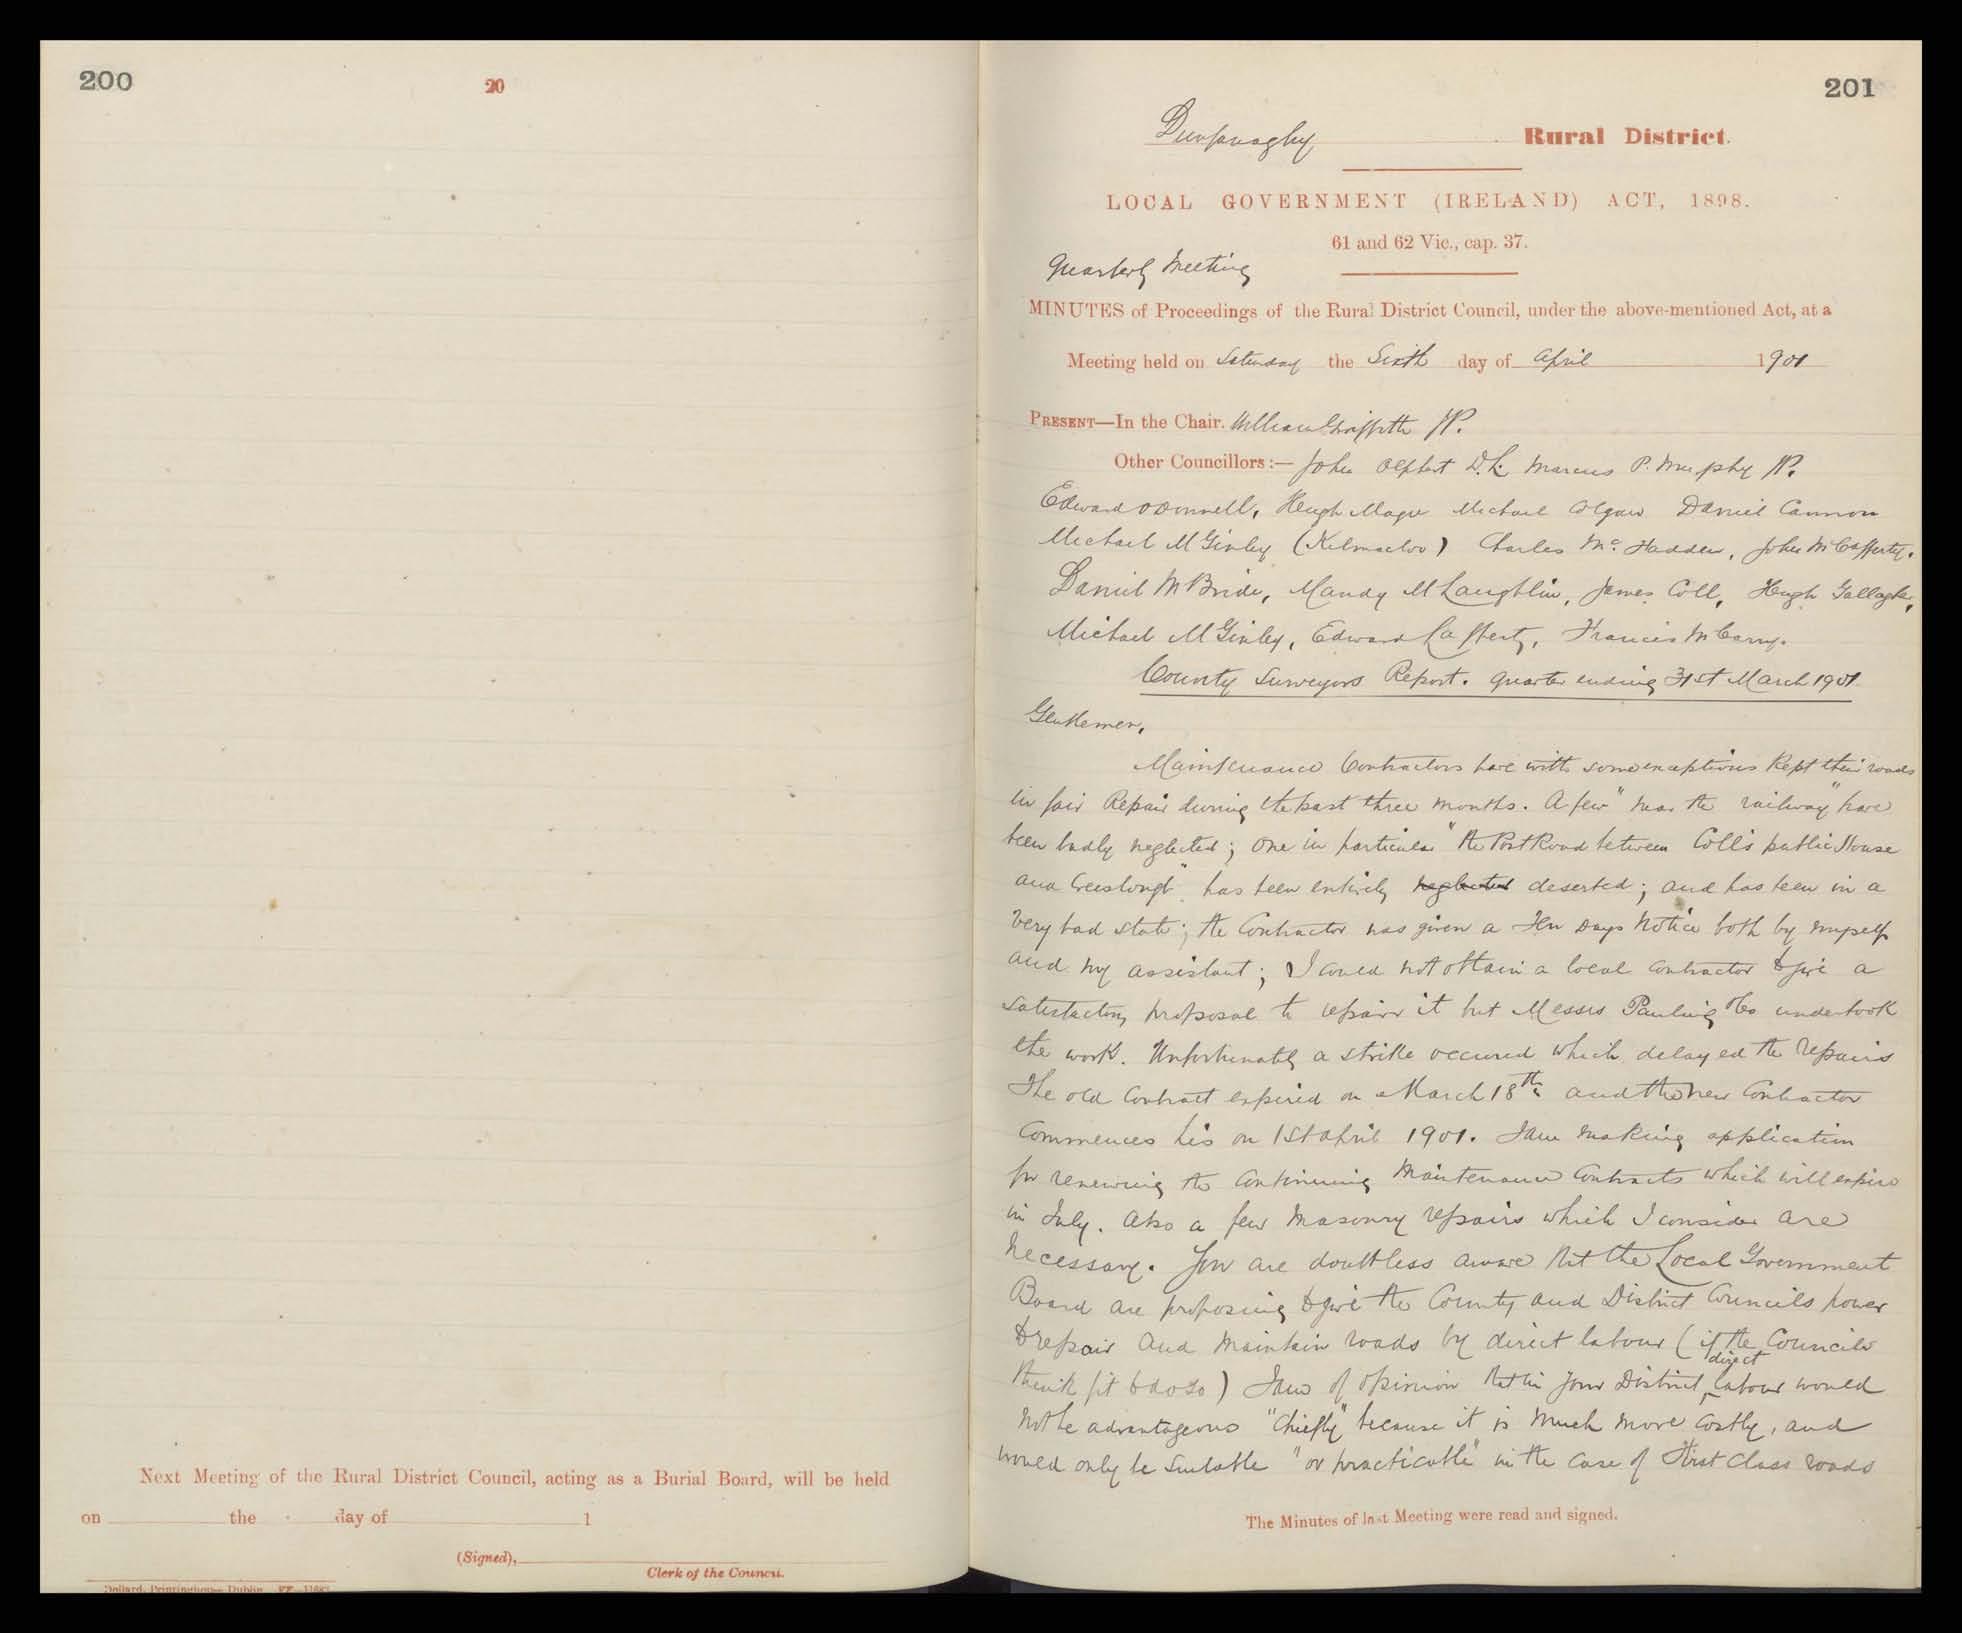 200
20
Next Meeting of the Rural District Council, acting as a Burial Board, will be held
on the day of 1
(Signed),
Clerk of the Council.
Dollard, Printinghouse Dublin
201
Dunfanaghy Rural District.
LOCAL GOVERNMENT (IRELAND) ACT, 1898.
61 and 62 Vic., cap. 37.
Quarterly Meeting
MINUTES of Proceedings of the Rural District Council, under the above-mentioned Act, at a
Meeting held on Saturday the Sixth day of April 1901
PRESENT—In the Chair. William Griffith JP.
Other Councillors:— John Olphert D.L. Marcus P. Murphy JP.
Edward O'Donnell, Hugh Magee Michael Colgan Daniel Cannon
Michael McGinley (Kilmacloo) Charles Mc. Hadden, John McCafferty.
Daniel McBride, Mandy McLaughlin, James Coll, Hugh Gallagher,
Michael McGinley, Edward Lafferty, Francis McGarry.
County Surveyors Report. Quarter ending 31st March 1901
Gentlemen,
Maintenance Contractors have with some exceptions kept their roads
in fair Repair during the past three months. A few "near the railway" have
been badly neglected; one in particular "the Post Road between Coll's public House
and Creeslough" has been entirely neglected deserted; and has been in a
very bad state; the Contractor was given a Ten Days Notice both by myself
and my assistant; I could not obtain a local contractor to give a
satisfactory proposal to repair it but Messrs Pauling & Co undertook
the work. Unfortunately a strike occured which delayed the repairs
The old Contract expired on March 18th and the new Contractor
Commences his on 1st April 1901. I am making application
for renewing the Continuing Maintenance Contracts which will expire
in July. Also a few Masonry repairs which I consider are
necessary. You are doubtless aware that the Local Government
Board are proposing to give the County and District Councils power
to repair and maintain roads by direct labour (if the Councils
think fit to do so) I am of opinion that in your District direct labour would
not be advantageous "Chiefly" because it is much more costly, and
would only be suitable "or practicable" in the case of First Class roads
The Minutes of last Meeting were read and signed.